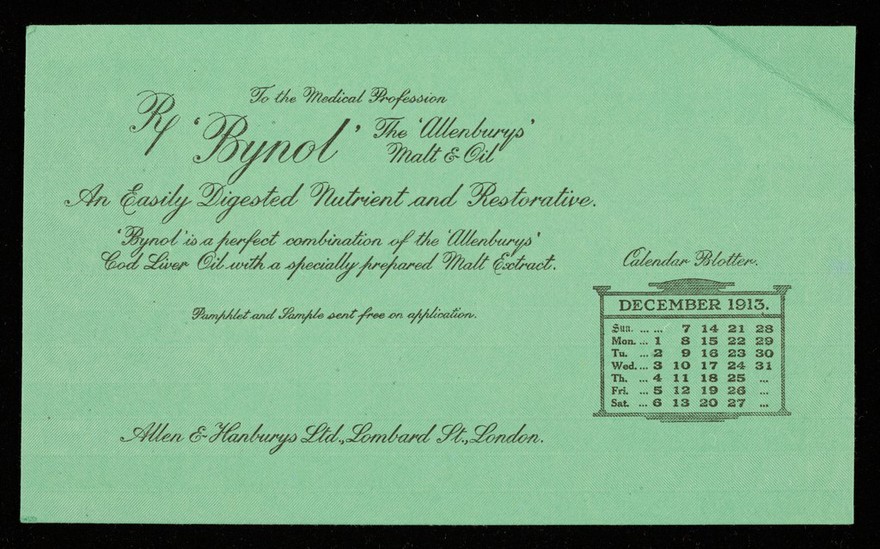 To the Medical Profession
Rx 'Bynol' The 'Allenburys'
Malt & Oil
An Easily Digested Nutrient and Restorative.
'Bynol' is a perfect combination of the 'Allenburys'
Cod Liver Oil with a specially prepared Malt Extract.
Pamphlet and Sample sent free on application.
Allen & Hanburys Ltd., Lombard St., London.
Calendar Blotter.
DECEMBER 1913.
Sun. ... ... 7 14 21 28
Mon. ... 1 8 15 22 29
Tu. ... 2 9 16 23 30
Wed. ... 3 10 17 24 31
Th. ... 4 11 18 25 ...
Fri. ... 5 12 19 26 ...
Sat. ... 6 13 20 27 ...